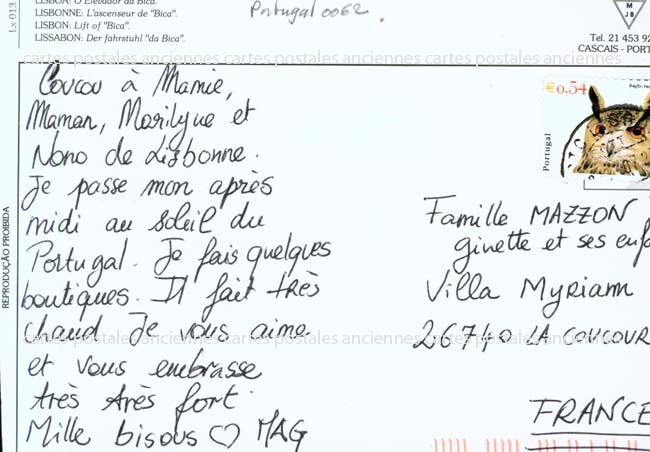 LISBOA: O Elevador da Bica.
LISBONNE: L'ascenseur de "Bica".
LISBON: Lift of "Bica".
LISSABON: Der fahrstuhl "da Bica".
Lx 013
Portugal 0062.
M
J B
Tel. 21 453 92
CASCAIS - PORT
cartes postales anciennes cartes postales anciennes cartes postales anciennes
Coucou à Mamie,
Maman, Marilyne et
Nono de Lisbonne.
Je passe mon après
midi au soleil du
Portugal. Je fais quelques
boutiques. Il fait très
chaud Je vous aime
et vous embrasse
très très fort.
Mille bisous ♡ MAG
€0,54
Portugal
Famille MAZZON
ginette et ses enf
Villa Myriam
26740 LA COUCOUR
FRANCE
cartes postales anciennes cartes postales anciennes cartes postales anciennes
REPRODUÇÃO PROIBIDA